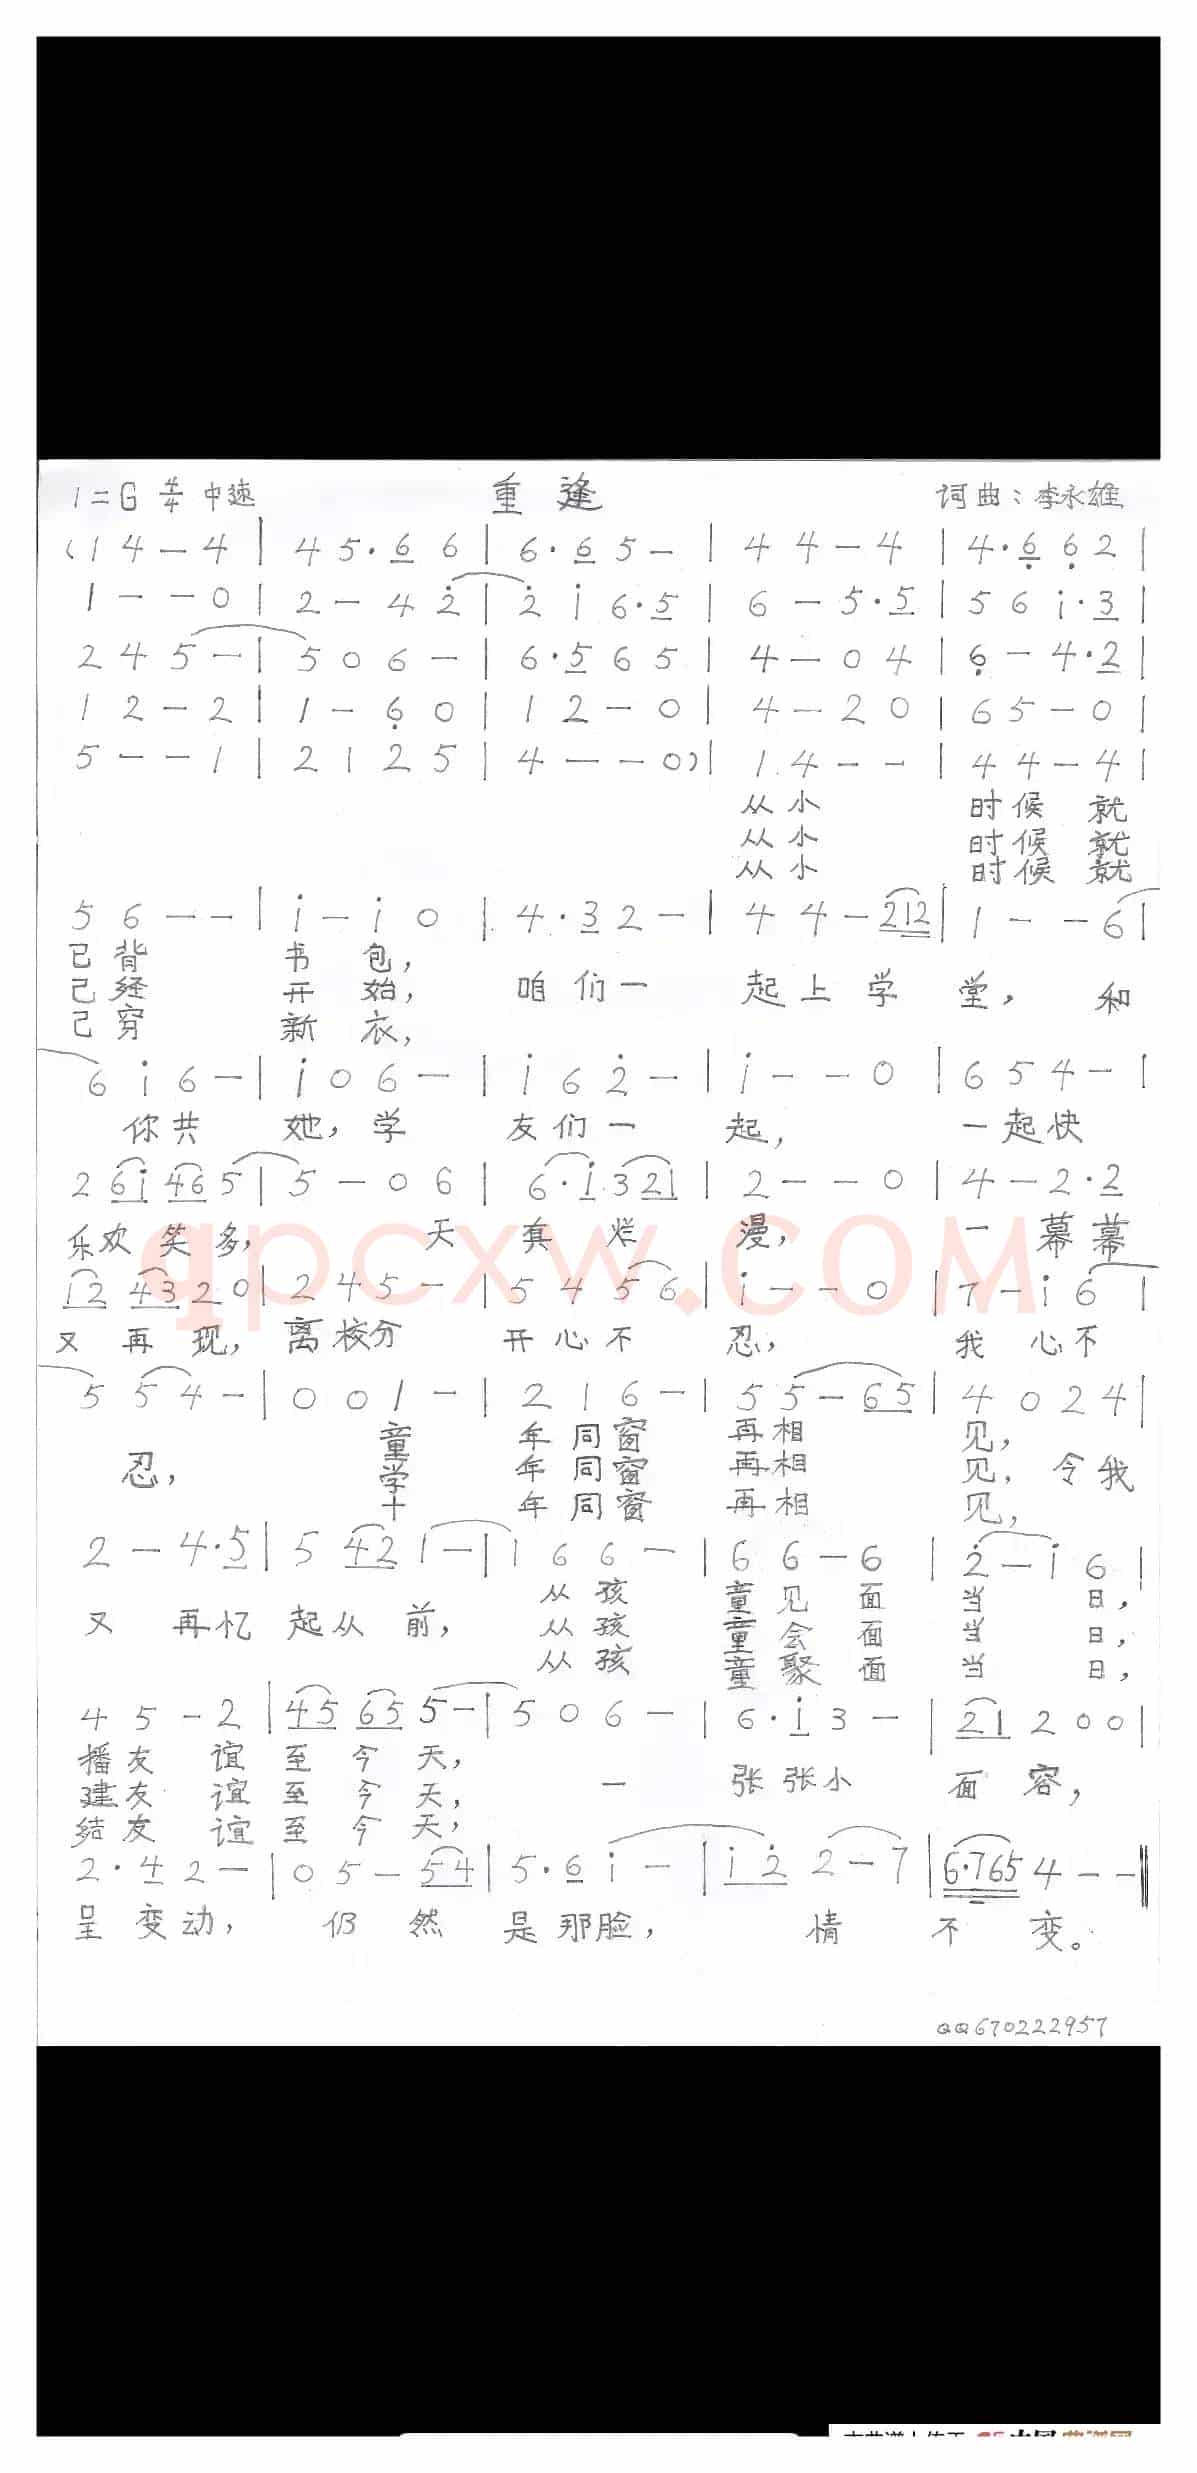 1=G 4/4 中速 重逢 词曲：李永雄
(1 4 — 4 | 4 5· 6 6 | 6· 6 5 — | 4 4 — 4 | 4· 6̣ 6̣ 2 |
1 — — 0 | 2 — 4 2̇ | 2̇ i 6·5 | 6 — 5·5 | 5 6 i·3 |
2 4 5 — | 5 0 6 — | 6·5 6 5 | 4 — 0 4 | 6̣ — 4·2 |
1 2 — 2 | 1 — 6̣ 0 | 1 2 — 0 | 4 — 2 0 | 6 5 — 0 |
5 — — 1 | 2 1 2 5 | 4 — — 0) | 1 4 — — | 4 4 — 4 |
从小 时候 就
从小 时候 就
从小 时候 就
5 6 — — | i — i 0 | 4·3 2 — | 4 4 — 212 | 1 — — 6 |
已背 书 包，
已经 开 始， 咱们一 起上学 堂， 和
已穿 新 衣，
6 i 6 — | i 0 6 — | i 6 2̇ — | i — — 0 | 6 5 4 — |
你共 她，学 友们一 起， 一起快
2 6i 46 5 | 5 — 0 6 | 6·i 3 21 | 2 — — 0 | 4 — 2·2
乐欢笑多， 天 真烂 漫， 一幕幕
qpcxw.COM
12 43 2 0 | 2 4 5 — | 5 4 5 6 | i — — 0 | 7 — i 6 |
又再现， 离校分 开心不 忍， 我心不
5 5 4 — | 0 0 1 — | 2 1 6 — | 5 5 — 65 | 4 0 2 4 |
童 年同窗 再相 见，
忍， 学 年同窗 再相 见，令我
十 年同窗 再相 见，
2 — 4·5 | 5 42 1 — | 1 6 6 — | 6 6 — 6 | 2̇ — i 6 |
从孩 童见面 当 日，
又再忆 起从前， 从孩 童会面 当 日，
从孩 童聚面 当 日，
4 5 — 2 | 45 65 5 — | 5 0 6 — | 6·i 3 — | 21 2 0 0 |
播友谊 至今天，
建友谊 至今天， 一 张张小 面容，
结友谊 至今天，
2·4 2 — | 0 5 — 54 | 5·6 i — | i2̇ 2 — 7 | 6·765 4 — — ‖
呈变动， 仍然 是那脸， 情 不 变。
QQ670222957